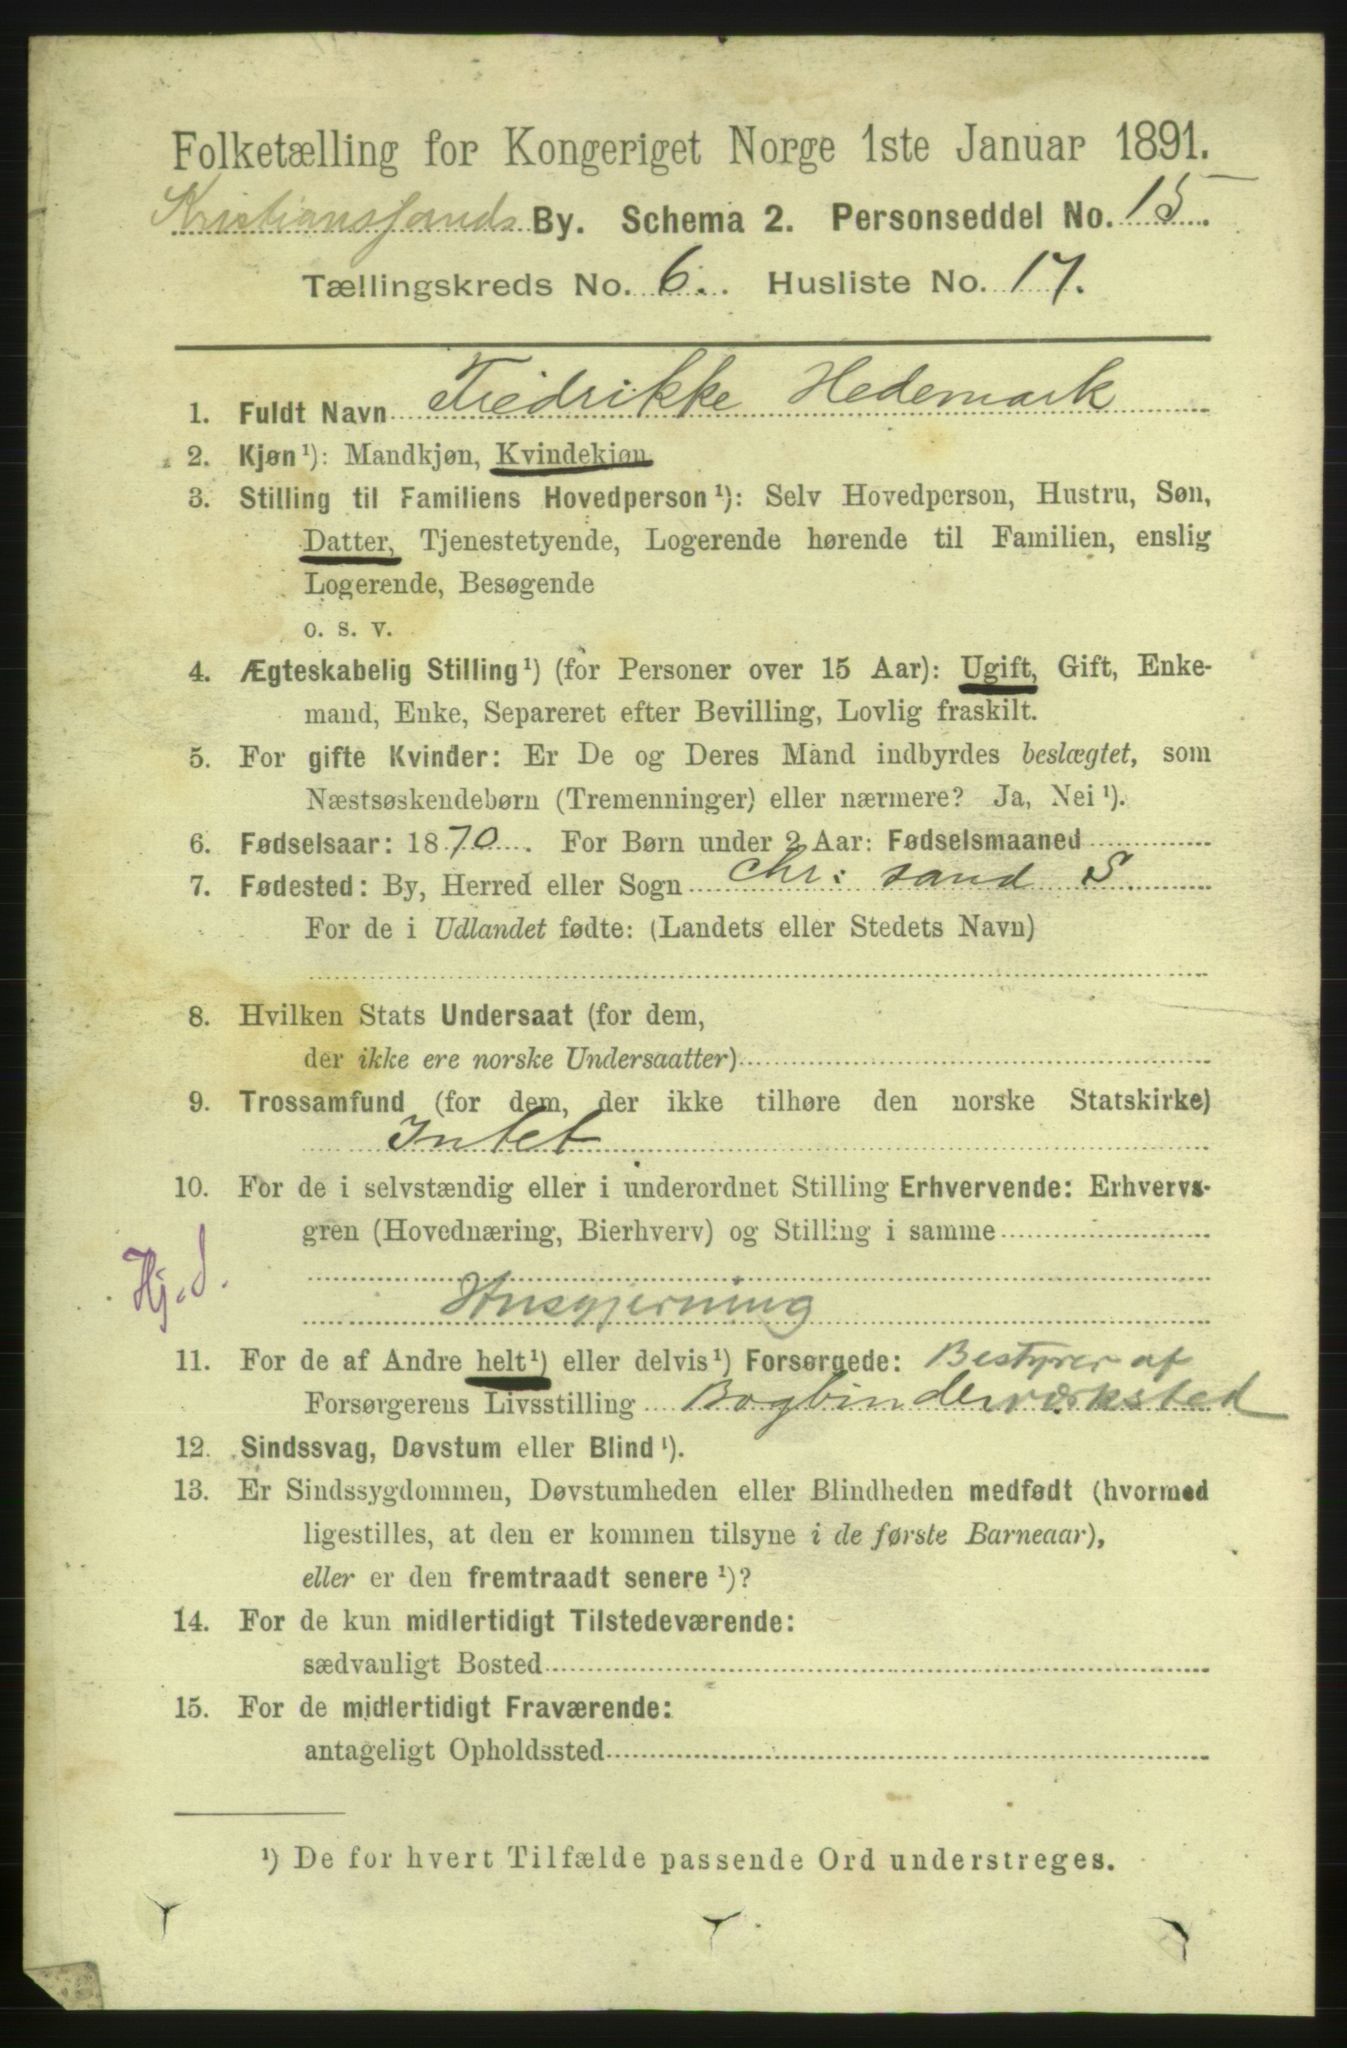 Folketælling for Kongeriget Norge 1ste Januar 1891.
Kristianssands By. Schema 2. Personseddel No. 15.
Tællingskreds No. 6. Husliste No. 17.
1. Fuldt Navn Fredrikke Hedemark
2. Kjøn ¹): Mandkjøn, Kvindekjøn
3. Stilling til Familiens Hovedperson ¹): Selv Hovedperson, Hustru, Søn,
Datter, Tjenestetyende, Logerende hørende til Familien, enslig
Logerende, Besøgende
o. s. v.
4. Ægteskabelig Stilling ¹) (for Personer over 15 Aar): Ugift, Gift, Enke-
mand, Enke, Separeret efter Bevilling, Lovlig fraskilt.
5. For gifte Kvinder: Er De og Deres Mand indbyrdes beslægtet, som
Næstsøskendebørn (Tremenninger) eller nærmere? Ja, Nei ¹).
6. Fødselsaar: 1870. For Børn under 2 Aar: Fødselsmaaned
7. Fødested: By, Herred eller Sogn Chr: sand S.
For de i Udlandet fødte: (Landets eller Stedets Navn)
8. Hvilken Stats Undersaat (for dem,
der ikke ere norske Undersaatter)
9. Trossamfund (for dem, der ikke tilhøre den norske Statskirke)
Intet
10. For de i selvstændig eller i underordnet Stilling Erhvervende: Erhvervs-
gren (Hovednæring, Bierhverv) og Stilling i samme
Hj. d.
Husgjerning
11. For de af Andre helt ¹) eller delvis ¹) Forsørgede: Bestyrer af
Forsørgerens Livsstilling Bogbinderværksted
12. Sindssvag, Døvstum eller Blind ¹).
13. Er Sindssygdommen, Døvstumheden eller Blindheden medfødt (hvormed
ligestilles, at den er kommen tilsyne i de første Barneaar),
eller er den fremtraadt senere ¹)?
14. For de kun midlertidigt Tilstedeværende:
sædvanligt Bosted
15. For de midlertidigt Fraværende:
antageligt Opholdssted
¹) De for hvert Tilfælde passende Ord understreges.